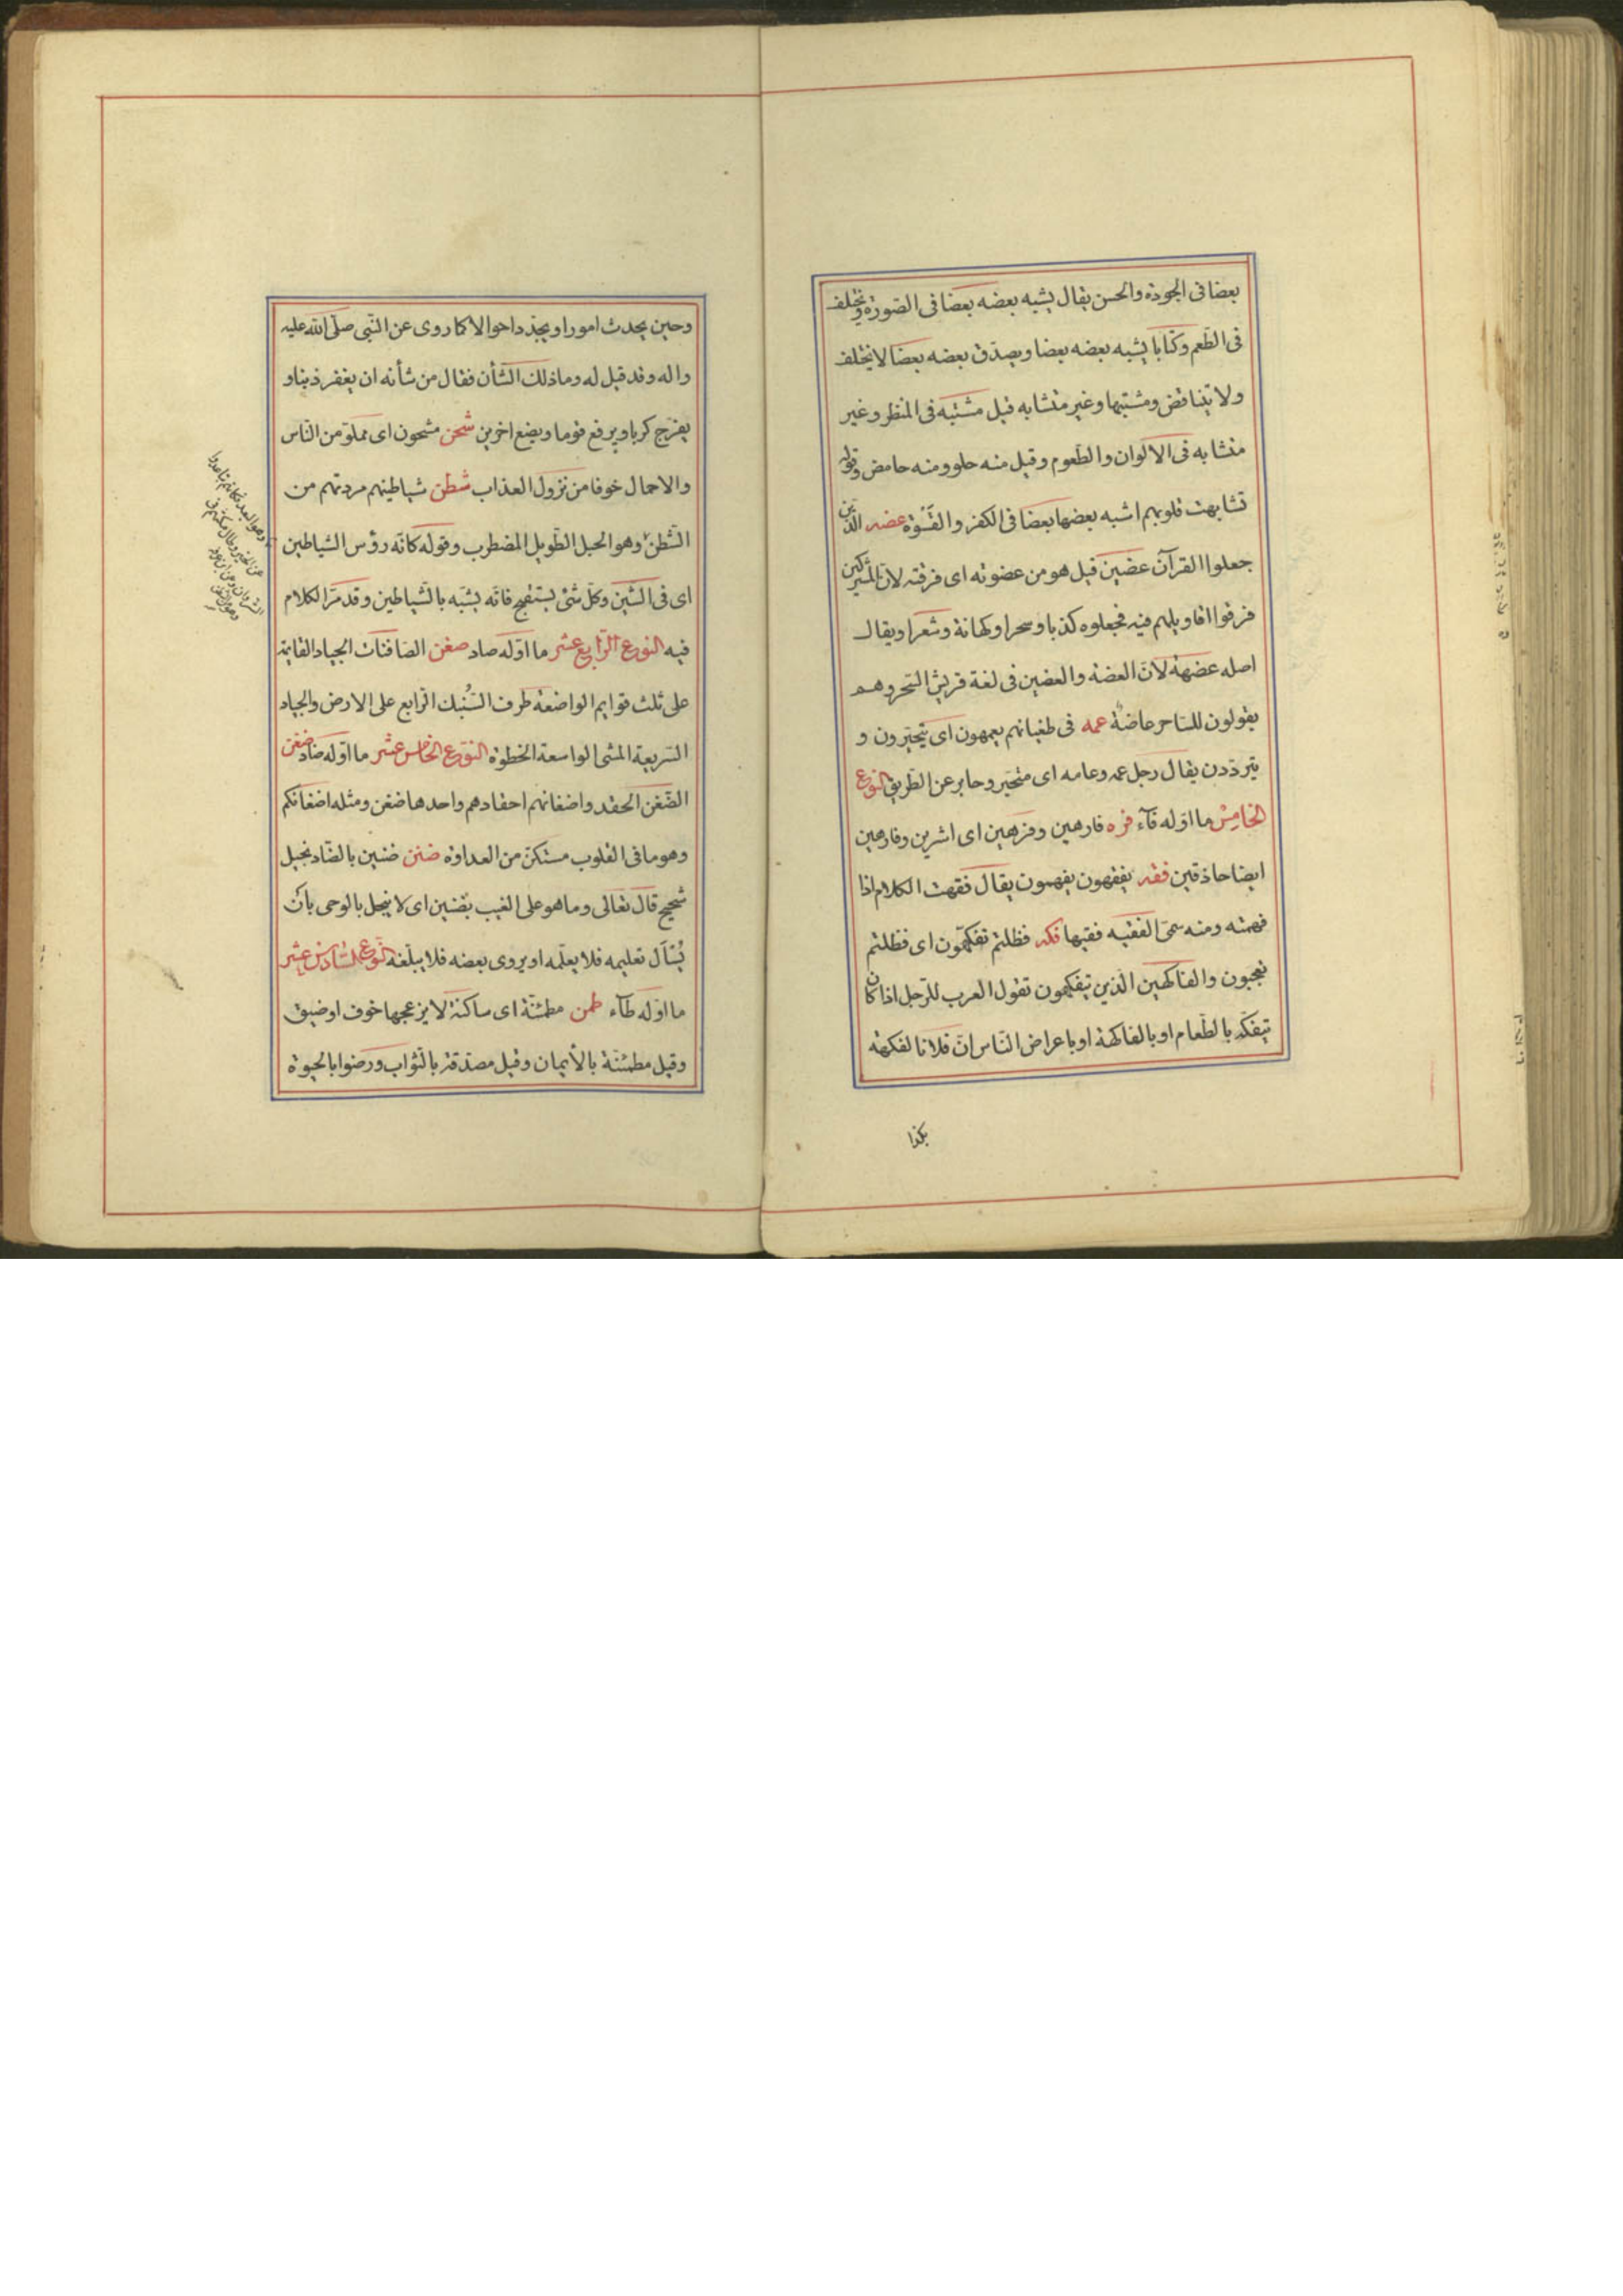 بعضا فى الجودة والحسن يقال يشبه بعضه بعضا فى الصورة ويختلف
فى الطّعم وكتابا يشبه بعضه بعضا ويصدّق بعضه بعضا لا يختلف
ولا يتناقض ومشتبها وغير متشابه قيل مشتبه فى المنظر وغير
متشابه فى الالوان والطّعوم وقيل منه حلو ومنه حامض وقوله
تشابهت قلوبهم اشبه بعضها بعضا فى الكفر والقسوة عضه الّذين
جعلوا القرآن عضين قيل هو من عضوته اى فرقته لانّ المشركين
فرقوا اقاويلهم فيه فجعلوه كذبا وسحرا وكهانة وشعرا ويقال
اصله عضهة لانّ العضة والعضين فى لغة قريش السّحر وهم
يقولون للسّاحر عاضهة عمه فى طغيانهم يعمهون اى يتحيّرون و
يتردّدن يقال رجل عمه وعامه اى متحيّر وحاير عن الطّريق النّوع
الخامس ما اوّله فآء فره فارهين وفرهين اى اشرين وفارهين
ايضا حاذقين فقه يفقهون يفهمون يقال فقهت الكلام اذا
فهمته ومنه سمىّ الفقيه فقيها فكه فظلتم تفكّهون اى فظلتم
تعجبون والفاكهين الّذين يتفكهون تقول العرب للرّجل اذا كان
يتفكّه بالطّعام او بالفاكهة او باعراض النّاس انّ فلانا لفكهة
بكذا
وحين يحدث امورا ويجدّد احوالا كما روى عن النّبى صلّى اللّه عليه
واله وقد قيل له وما ذلك الشّأن فقال من شأنه ان يغفر ذنبا و
يفرّج كربا ويرفع قوما ويضع اخرين شحن مشحون اى مملوّ من النّاس
والاحمال خوفا من نزول العذاب شطن شياطينهم مردتهم من
الشّطن وهو الحبل الطّويل المضطرب وقوله كانّه رؤس الشّياطين
اى فى الشّين وكلّ شئ يستقبح فانّه يشبّه بالشّياطين وقد مرّ الكلام
فيه النّوع الرّابع عشر ما اوّله صاد صفن الصّافنات الجياد القايمة
على ثلث قوايم الواضعة طرف السّنبك الرّابع على الارض والجياد
السّريعة المشى الواسعة الخطوة النّوع الخامس عشر ما اوّله ضاد ضغن
الضّغن الحقد واضغانهم احقادهم واحدها ضغن ومثله اضغانكم
وهو ما فى القلوب مستكنّ من العداوة ضنن ضنين بالضّاد بخيل
شحيح قال تعالى وما هو على الغيب بضنين اى لا يبخل بالوحى بان
يُسأل تعليمه فلا يعلّمه او يروى بعضه فلا يبلّغه النّوع السّادس عشر
ما اوّله طآء طمن مطمئنّة اى ساكنة لا يزعجها خوف او ضيق
وقيل مطمئنّة بالأيمان وقيل مصدّقة بالثّواب ورضوا بالحيوة